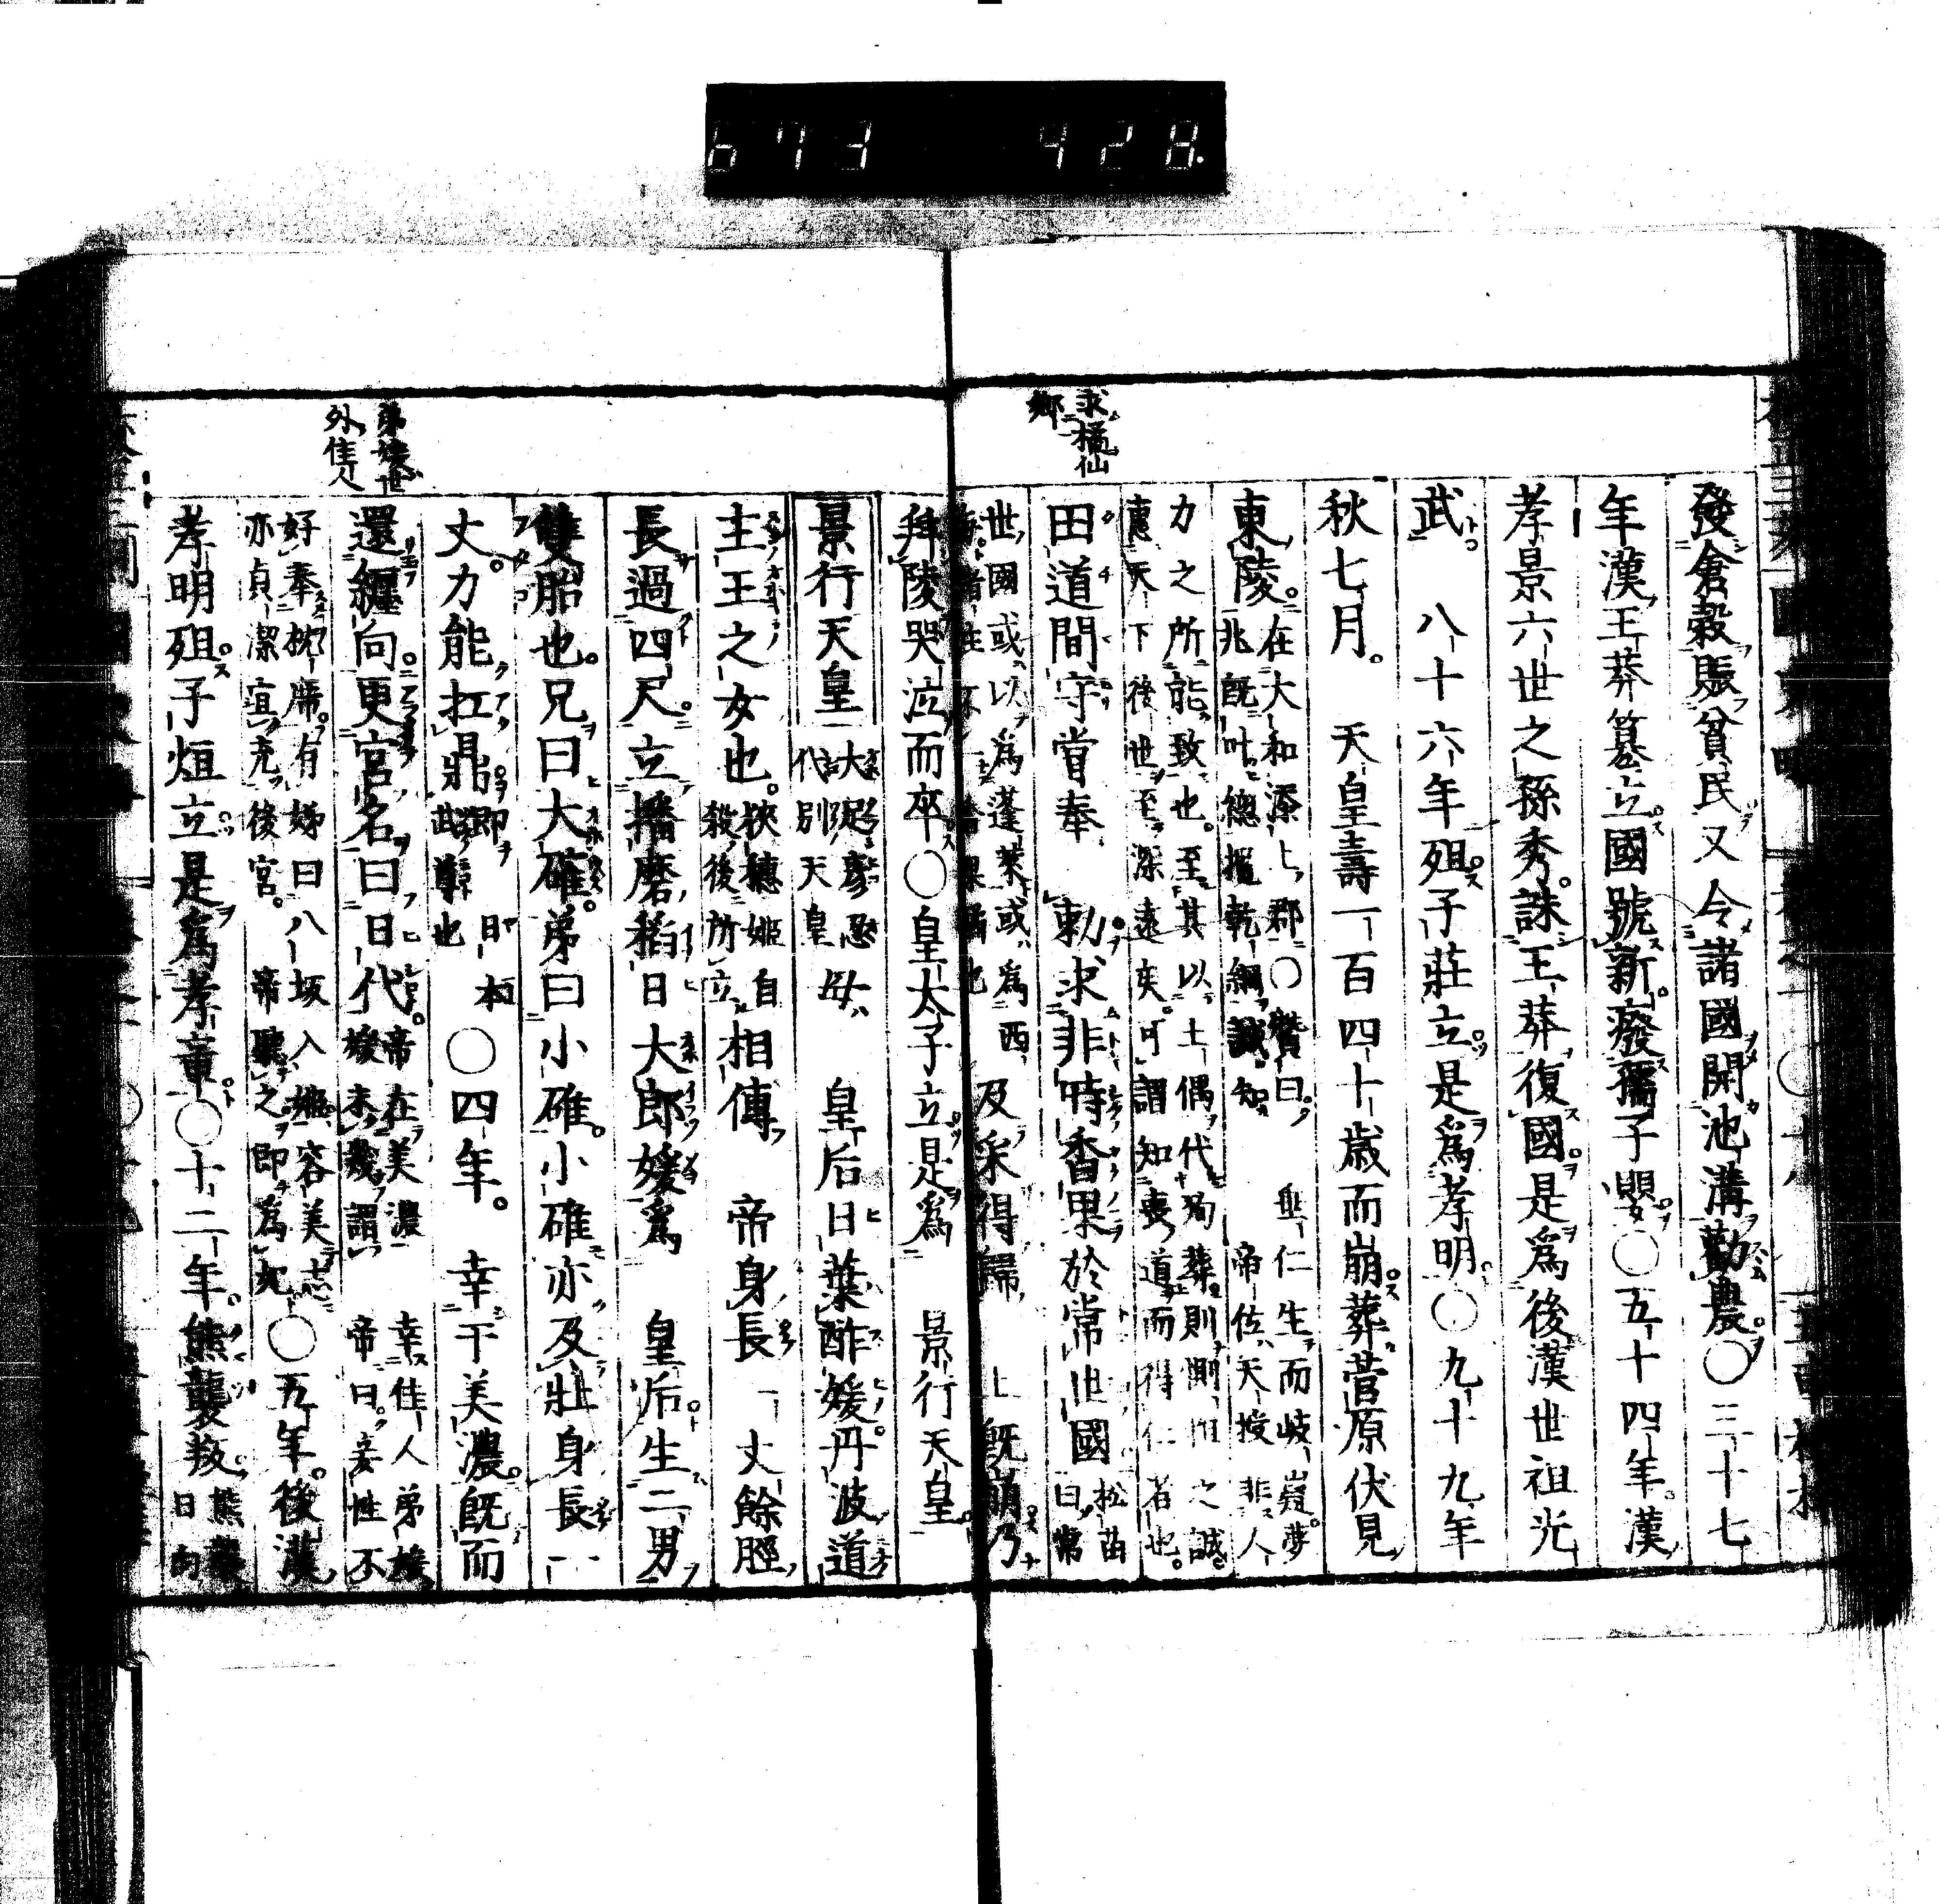 673 428
求橘仙
鄉
發倉穀賑貧民又令諸國開池溝勸農〇三十七
年漢王莽篡立國號新廢孺子嬰〇五十四年漢
孝景六世之孫秀誅王莽復國是爲後漢世祖光
武 八十六年殂子莊立是爲孝明〇九十九年
秋七月 天皇壽一百四十歲而崩葬菅原伏見
東陵
在大和添上郡〇贊曰 垂仁生而岐嶷夢
兆既叶總握乾綱誠知 帝佐天授非人
力之所能致也至其以土偶代殉葬則惻怛之誠
惠天下後世至深遠矣可謂知喪道而得仁者也
田道間守嘗奉 勅求非時香果於常世國
松苗
曰常
世國或以爲蓬萊或爲西
及采得歸 上既崩乃
拜陵哭泣而卒〇皇太子立是爲 景行天皇
景行天皇
大足彥忍
代別天皇
母 皇后日葉酢媛丹波道
主王之女也
狹穗姬自
殺後所立
相傳 帝身長一丈餘脛
長過四尺立播磨稻日大郎媛爲 皇后生二男
雙胎也兄曰大碓弟曰小碓小碓亦及壯身長一
丈力能扛鼎
卽 日本
武尊也
〇四年 幸于美濃既而
還纏向更宮名曰日代
帝在美濃 幸佳人弟媛
媛未幾謂 帝曰妾性不
好奉枕席有姊曰八坂入姬容美志
亦貞潔宜充後宮 帝聽之卽爲
〇五年後漢
孝明殂子烜立是爲孝章〇十二年熊襲叛
熊襲
日向
弟媛世
外佳人